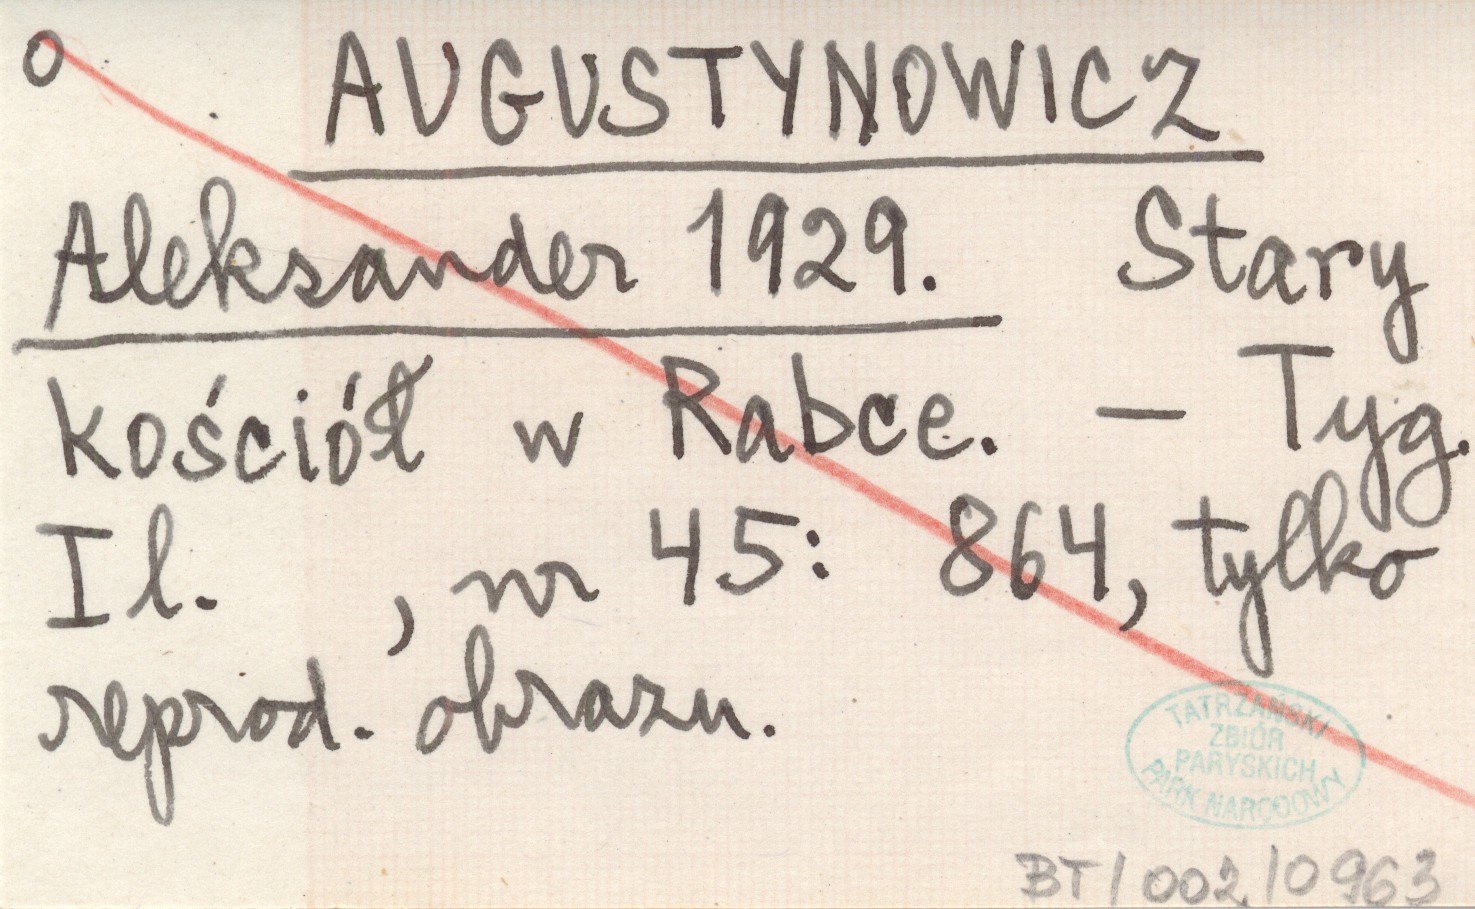 o AUGUSTYNOWICZ
Aleksander 1929. Stary
kościół w Rabce. — Tyg.
Il. , nr 45: 864, tylko
reprod. obrazu.
TATRZAŃSKI
ZBIÓR
PARYSKICH
PARK NARODOWY
BT/002/0963